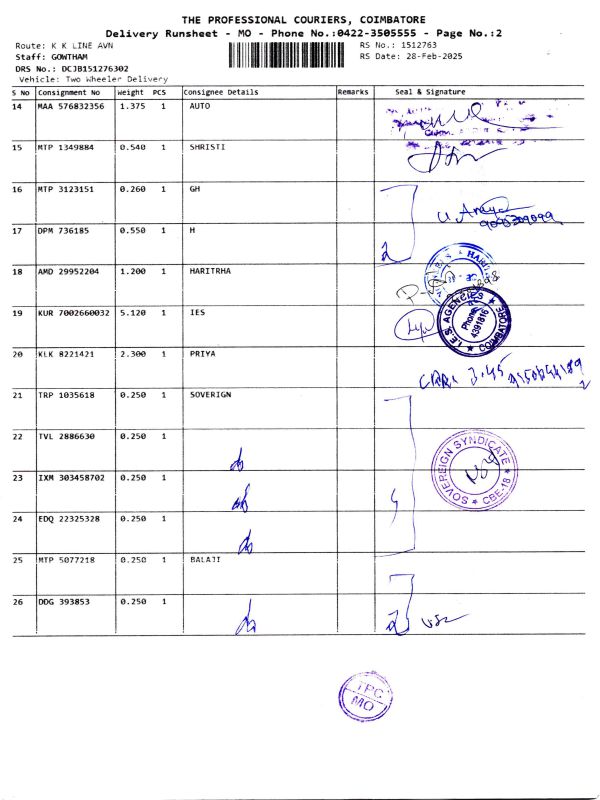 THE PROFESSIONAL COURIERS, COIMBATORE
Delivery Runsheet - MO - Phone No.:0422-3505555 - Page No.:2
Route: K K LINE AVN
RS No.: 1512763
Staff: GOWTHAM
RS Date: 28-Feb-2025
DRS No.: DCJB151276302
Vehicle: Two Wheeler Delivery
S No Consignment No Weight PCS Consignee Details Remarks Seal & Signature
14 MAA 576832356 1.375 1 AUTO
15 MTP 1349884 0.540 1 SHRISTI
16 MTP 3123151 0.260 1 GH
17 DPM 736185 0.550 1 H
18 AMD 29952204 1.200 1 HARITRHA
19 KUR 7002660032 5.120 1 IES
I.E.S. AGENCIES
Phone:
4391816
COIMBATORE
20 KLK 8221421 2.300 1 PRIYA
3.45
21 TRP 1035618 0.250 1 SOVERIGN
22 TVL 2886630 0.250 1
SOVEREIGN SYNDICATE
CBE-18
23 IXM 303458702 0.250 1
24 EDQ 22325328 0.250 1
25 MTP 5077218 0.250 1 BALAJI
26 DDG 393853 0.250 1
TPC
MO